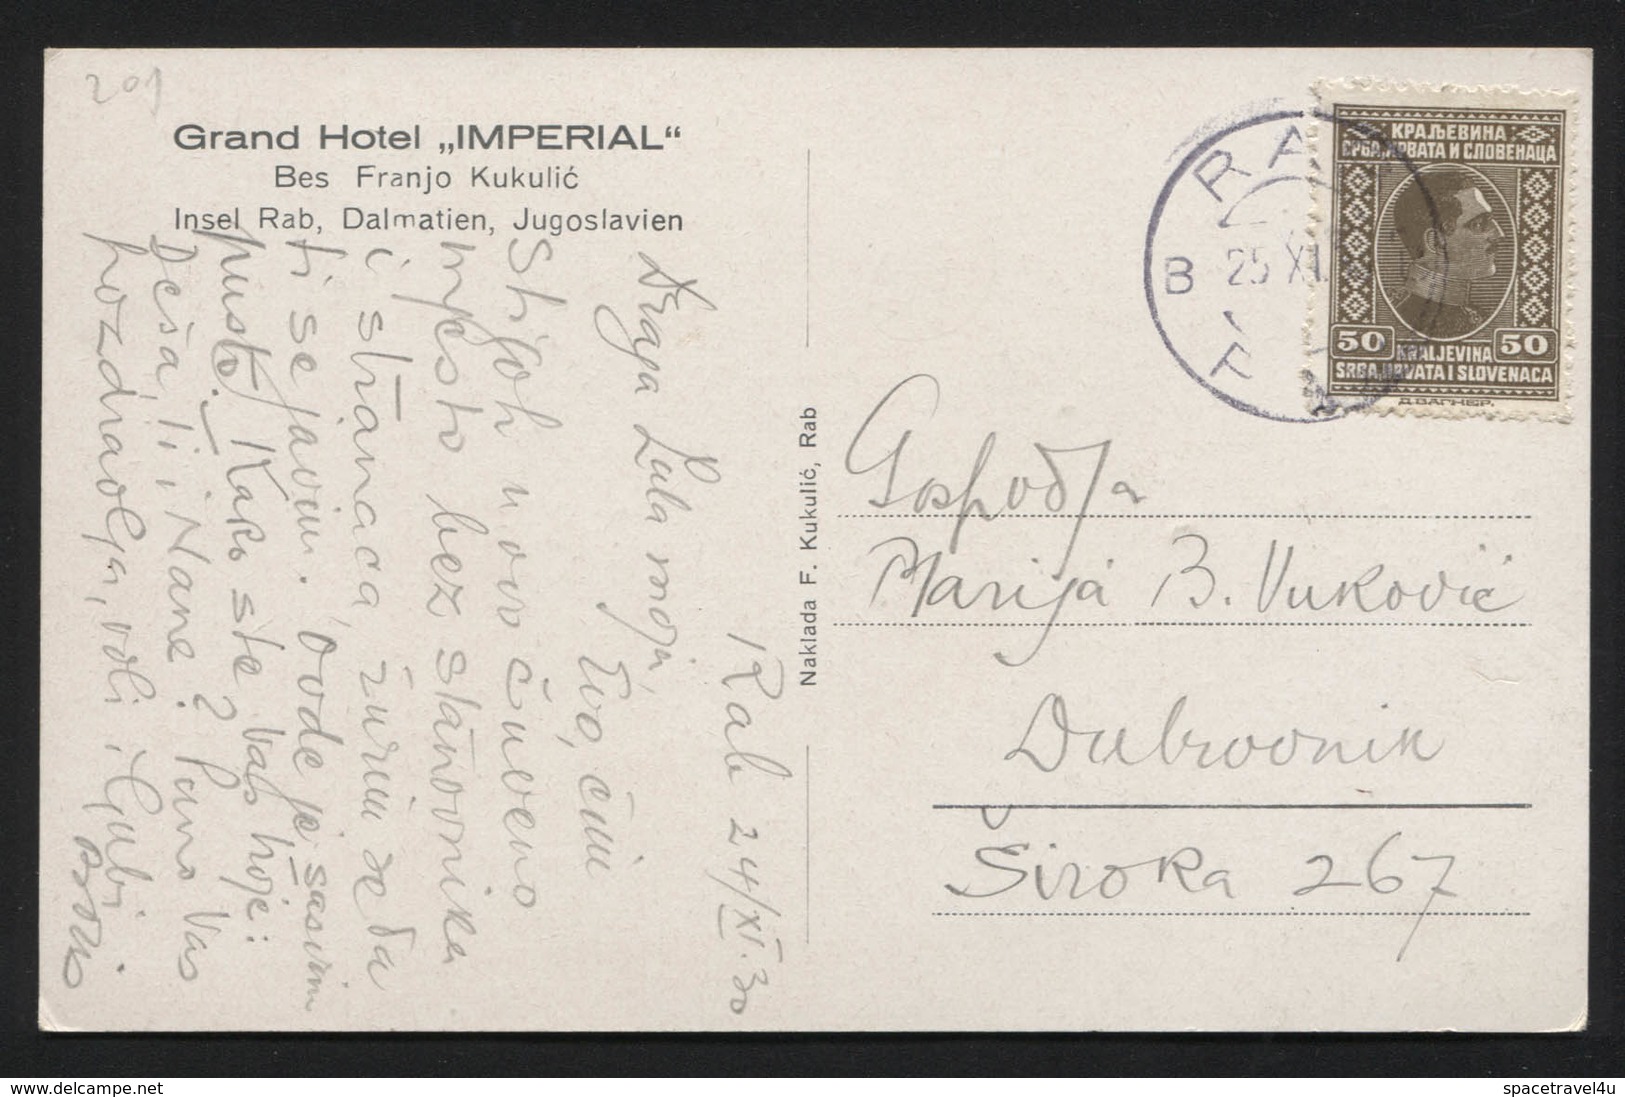 201
Grand Hotel „IMPERIAL“
Bes Franjo Kukulić
Insel Rab, Dalmatien, Jugoslavien
Rab 24/XI.30
Draga Lula moja,
Evo, čim
stigoh u ovo čuveno
mjesto bez stanovnika
i stranaca, žurim se da
ti se javim. Ovde je sasvim
pusto. Kako ste vas troje:
Deša, ti i Nane? Puno vas
pozdravlja, voli i ljubi
Naklada F. Kukulić, Rab
RAB
B 25 XI
КРАЉЕВИНА
СРБА, ХРВАТА И СЛОВЕНАЦА
50 KRALJEVINA 50
SRBA, HRVATA I SLOVENACA
Д.ВАГНЕР.
Gospodja
Marija B. Vuković
Dubrovnik
Široka 267
www.delcampe.net
spacetravel4u